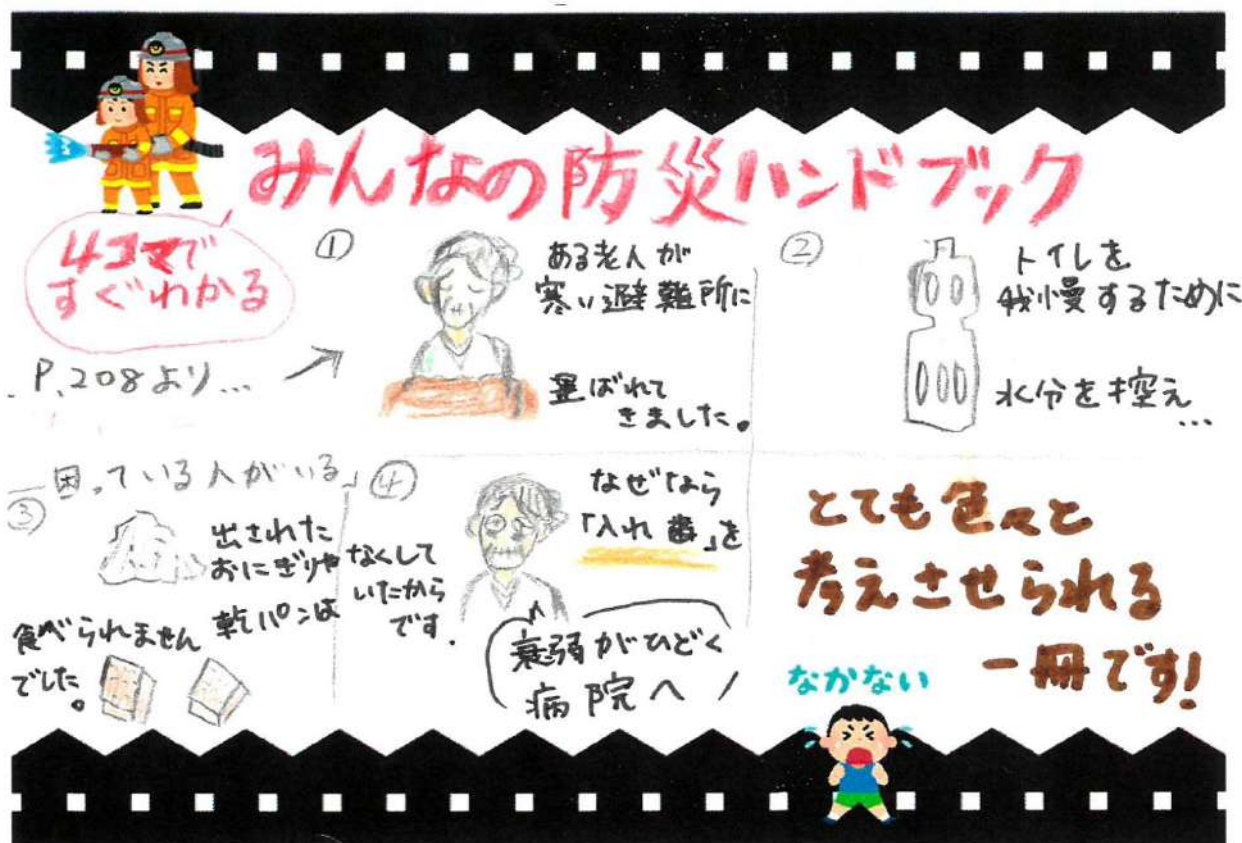 みんなの防災ハンドブック
4コマで
すぐわかる
P.208より…
①
ある老人が
寒い避難所に
運ばれて
きました。
②
トイレを
我慢するために
水分を控え
…
困っている人がいる」
③
出された
おにぎりや
乾パンは
食べられません
でした。
④
なぜなら
「入れ歯」を
なくして
いたから
です.
衰弱がひどく
病院へ
とても色々と
考えさせられる
一冊です!
なかない